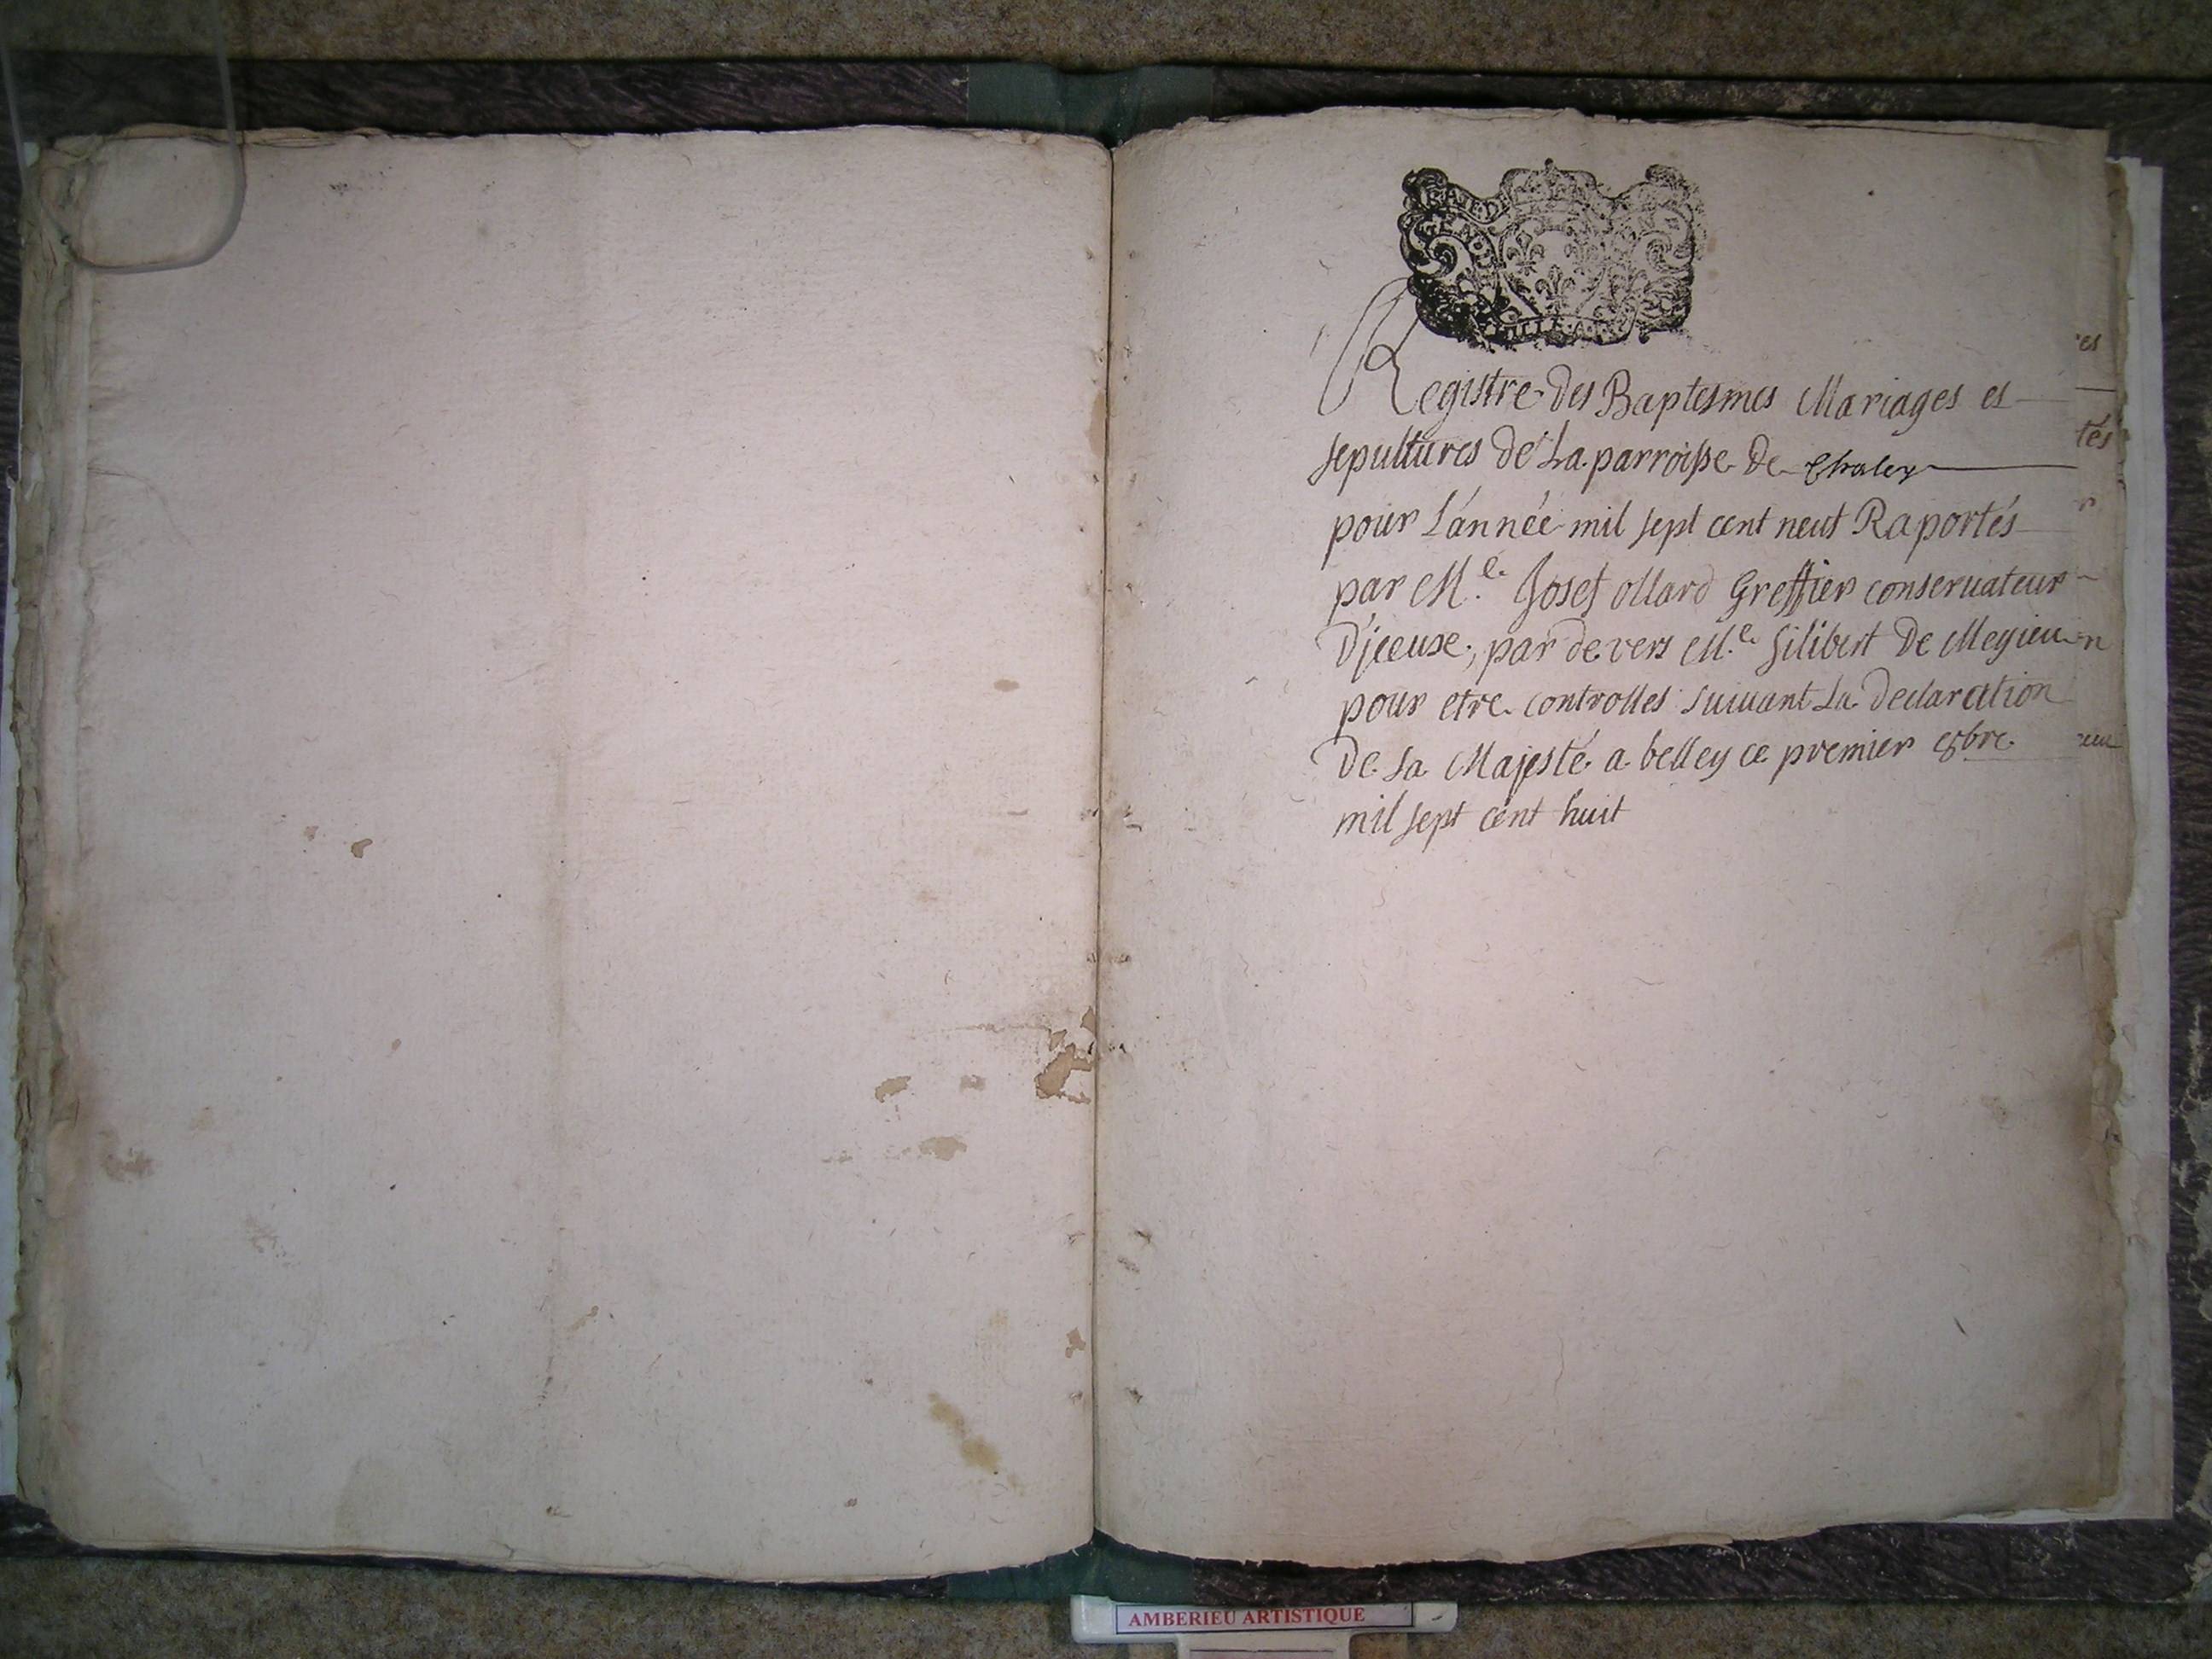 Registre des Baptesmes Mariages et
sepultures de La parroisse De Chaley
pour L'année mil sept cent neuf Raportés
par M.e Josef ollard Greffier conservateur
D'iceuse, par devers M.e filibert De Meyieu
pour etre controlles suivant La Declaration
De Sa Majesté a belley ce premier 8bre
mil sept cent huit
es
tés
AMBERIEU ARTISTIQUE